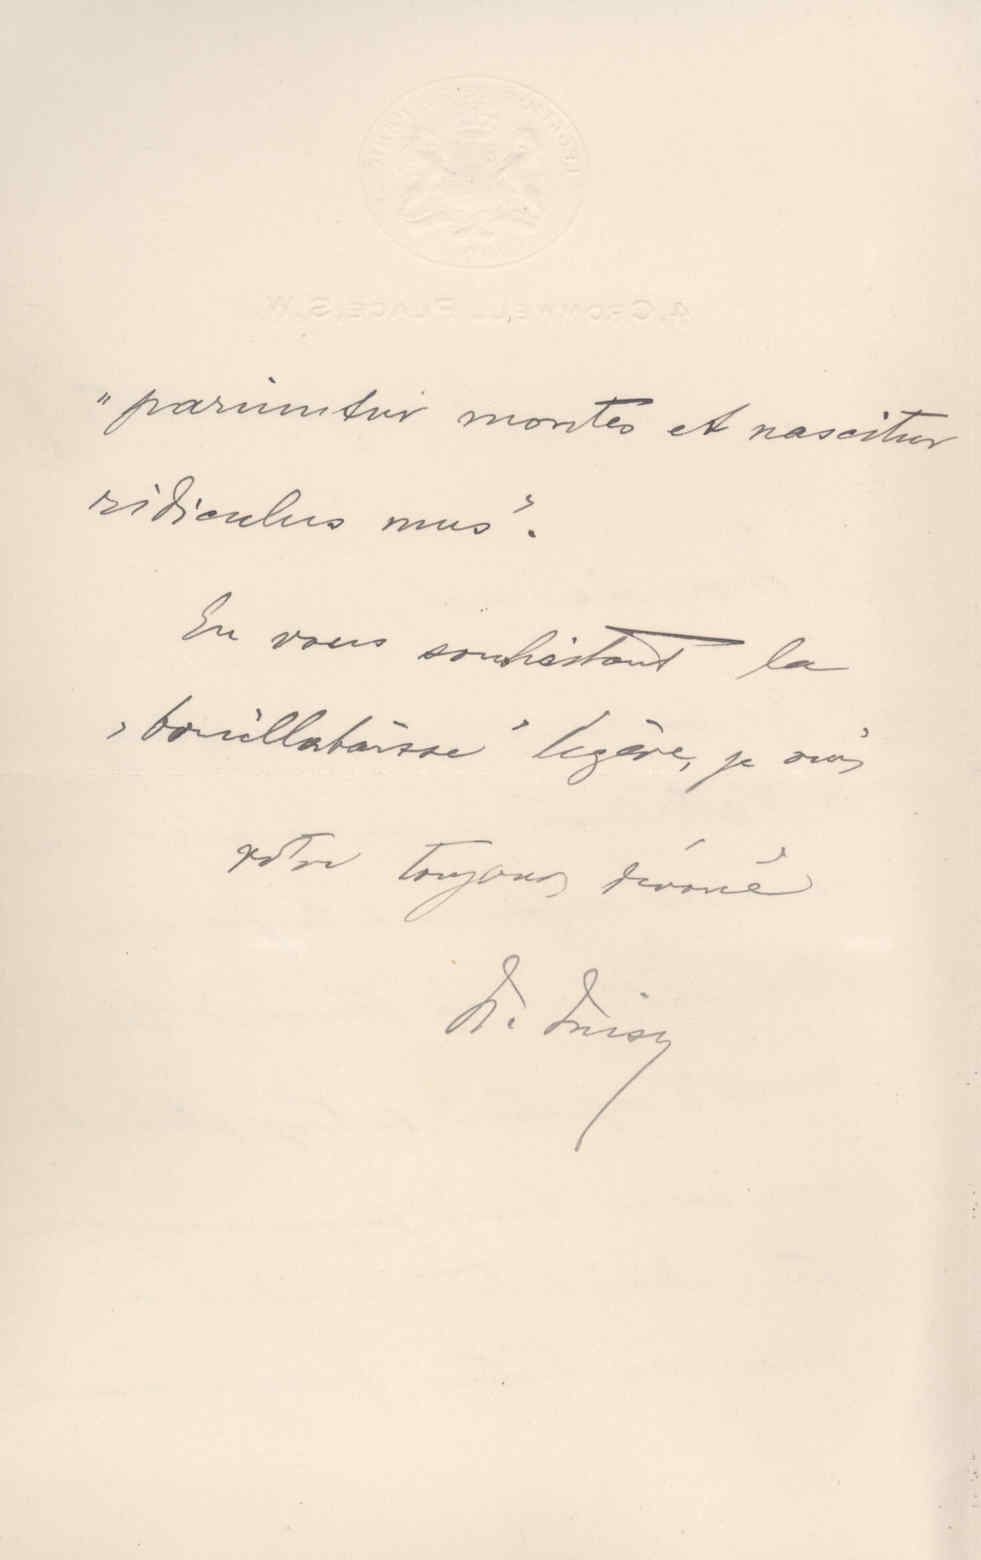 4, CROMWELL PLACE, S.W.
"pariuntur montes et nascitur
ridiculus mus".
En vous souhaitant la
"bouillabaisse" légère, je suis
votre toujours dévoué